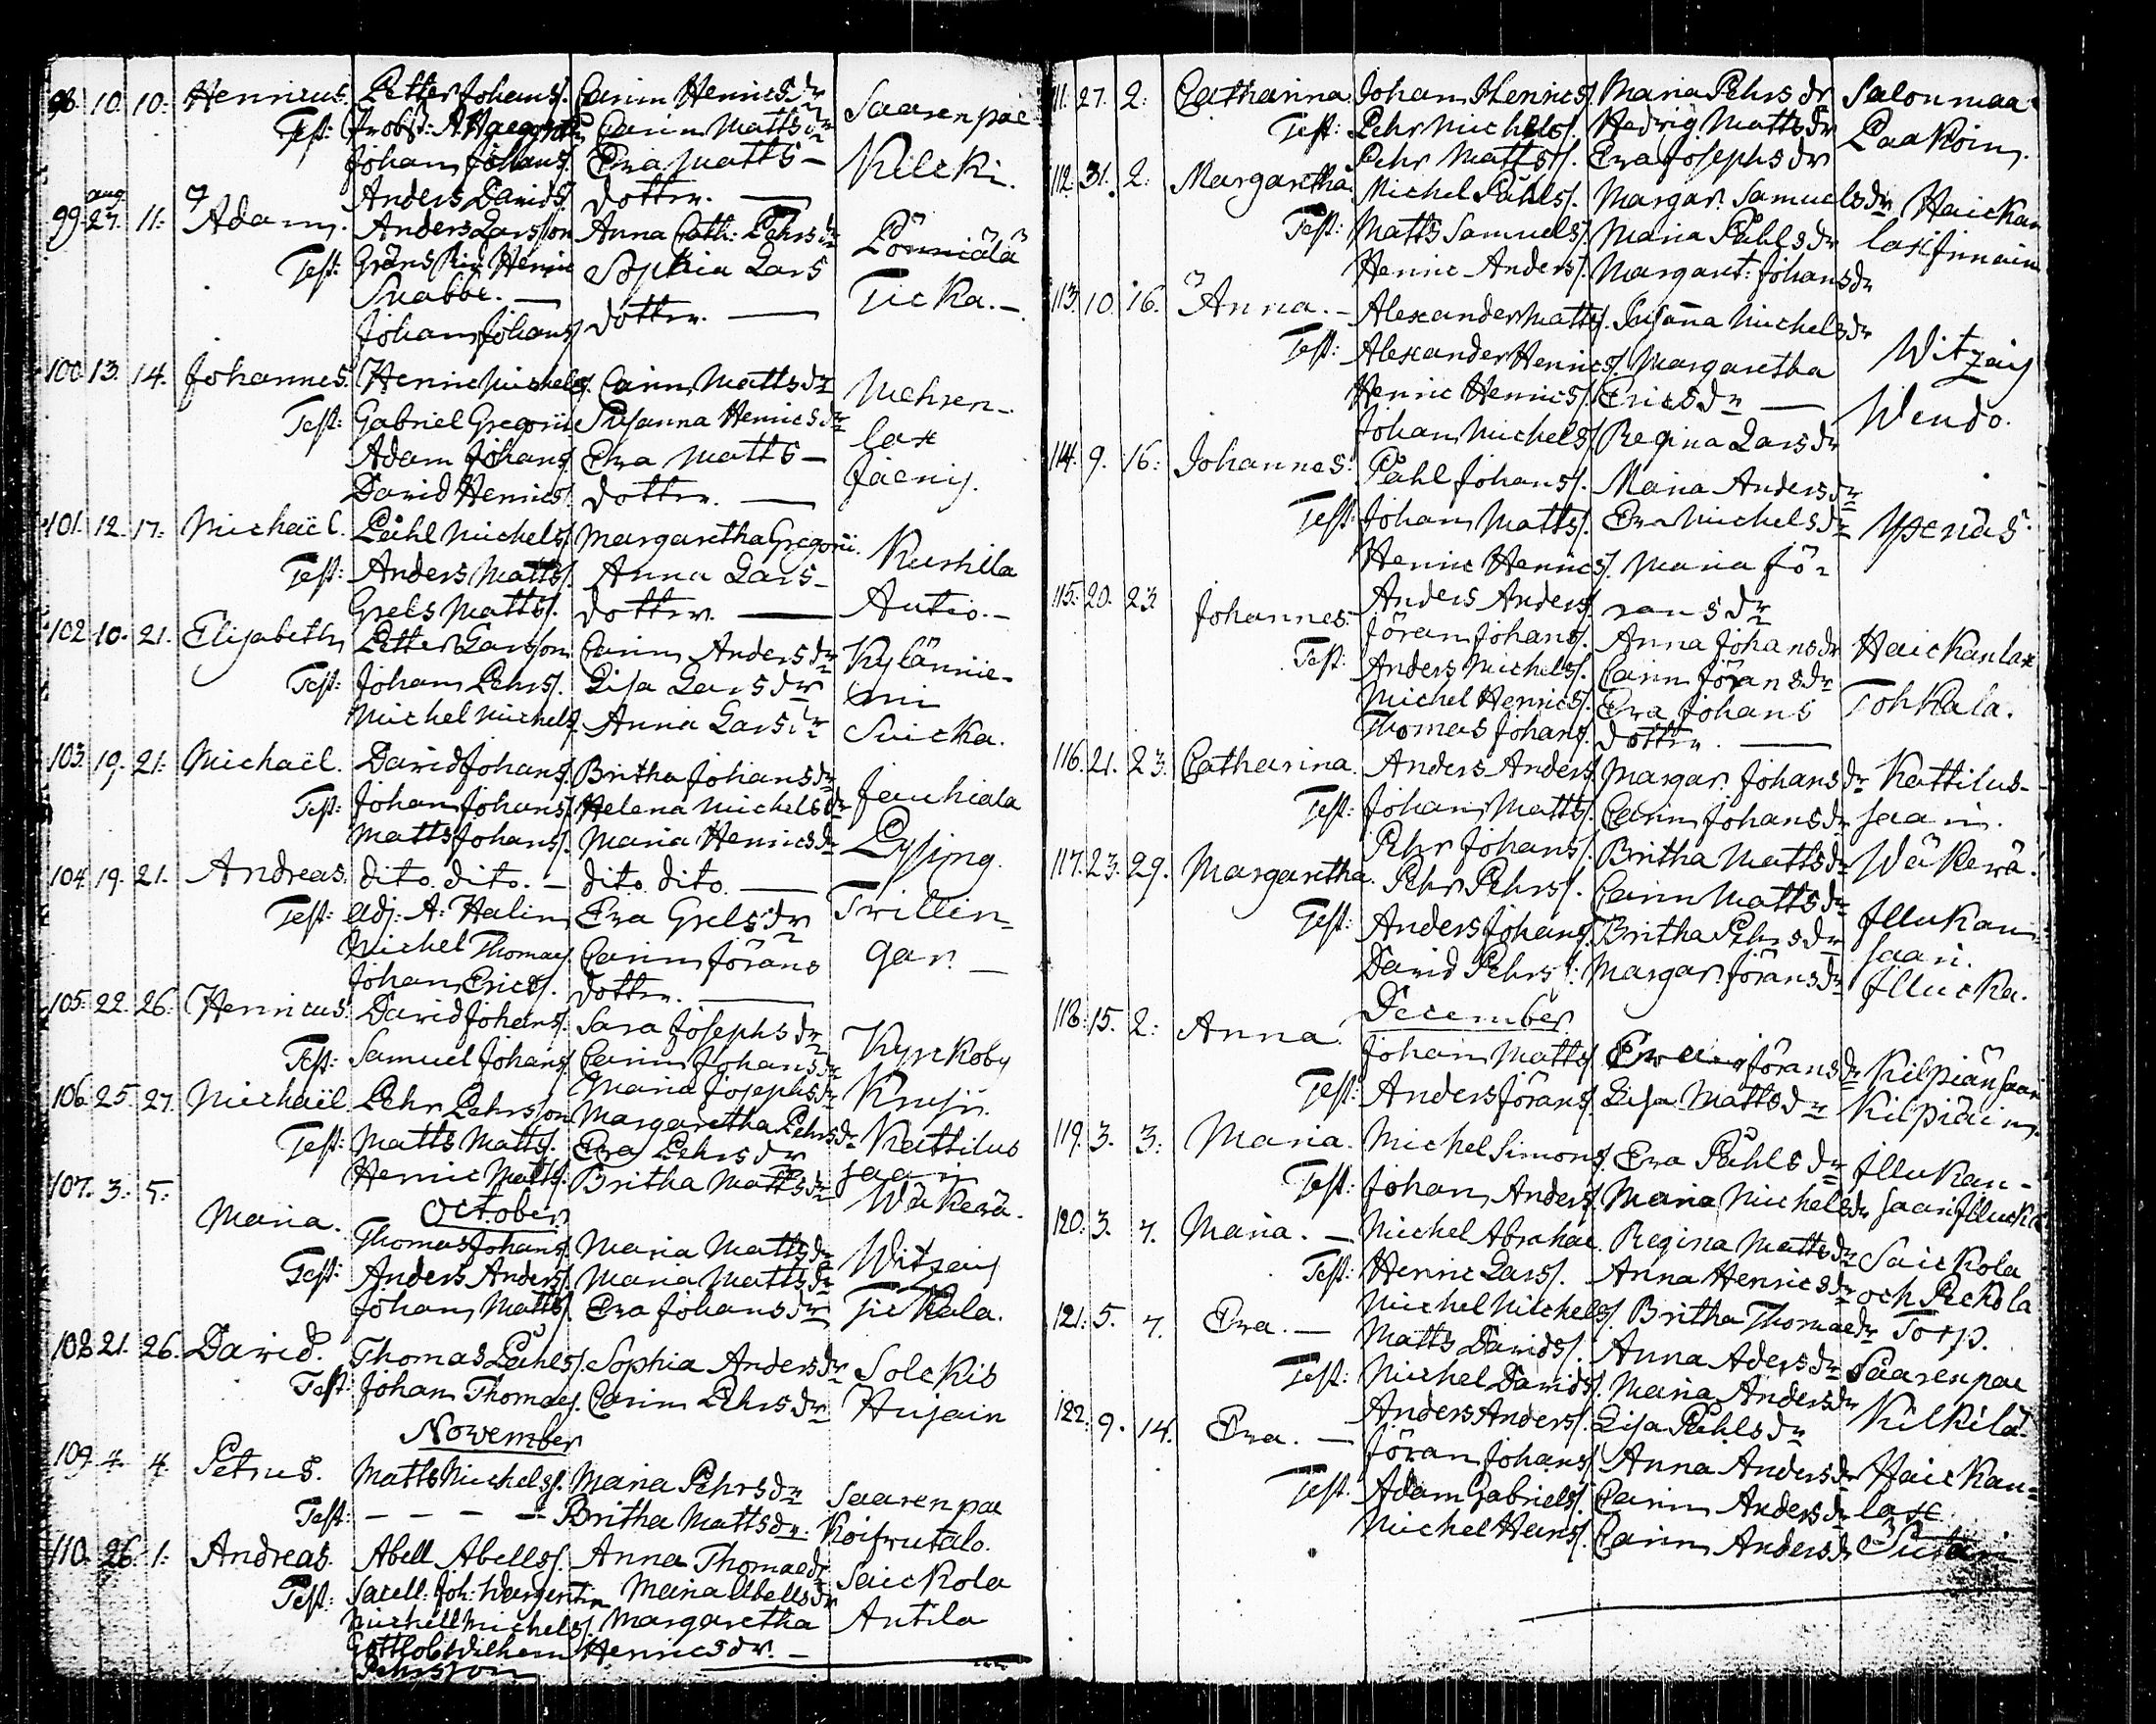 98. 10. 10: Henricus. Petter Johanss. Carin Henricsdr Saarenpae
Test: Carin Mattsdr
Johan Johanss. Eva Matts- Kilcki.
Anders Davids. dotter. —
aug
99. 27. 11: Adam. Anders Larsson Anna Cath: Pehrsdr Pönniälä
Test: Gräns Rid. Henric Sophia Lars
Snabbe. — dotter. — Ticka. —
Johan Johanss
100. 13. 14. Johannes. Henric Michels. Carin Mattsdr Mehren-
Test: Gabriel Gregorii Susanna Henricsdr lax
Adam Johans Eva Matts- Jaenis.
David Henrics. dotter. —
101. 12. 17. Michaël. Påhl Michels. Margaretha Gregorii. Kurkila
Test: Anders Matts. Anna Lars- Autio. —
Grels Matts. dotter. —
102. 10. 21. Elisabeth Petter Larsson Carin Andersdr Kylännie-
Test: Johan Pehrs. Lisa Larsdr mi
Michel Michels. Anna Larsdr Suicka.
103. 19. 21. Michaël. David Johans. Britha Johansdr Jauhiala
Test: Johan Johans. Helena Michelsdr
Matts Johans. Maria Henricsdr Pysing.
104. 19. 21. Andreas. dito. dito. — dito. dito. — Twillin-
Test: Adj: A: Halin Eva Grelsdr gar. —
Michel Thomas. Carin Jörans
Johan Erics. dotter. —
105. 22. 26. Henricus. David Johans. Sara Josephsdr Kyrkoby
Test: Samuel Johans Carin Johansdr
Maria Josephsdr
106. 25. 27. Michaël. Pehr Pehrsson Margaretha Pehrsdr Kattilus
Test: Matts Matts. Eva Pehrsdr saari
Henric Matts. Britha Mattsdr Wäkerä.
October
107. 3. 5. Maria. Thomas Johans Maria Mattsdr Witsai
Test: Anders Anders. Maria Mattsdr
Johan Matts. Eva Johansdr Tickala.
108. 21. 26. David. Thomas Påhls. Sophia Andersdr Solckis
Test: Johan Thomas. Carin Pehrsdr Husain
November
109. 4. 4. Petrus. Matts Michels. Maria Pehrsdr Saarenpae
Test: — — — — Britha Mattsdr. Koifrutalo.
110. 26. 1. Andreas. Abell Abells. Anna Thomaedr Saickola
Test: Sacell: Joh: Wargentin Maria Abellsdr
Michell Michels. Margaretha Antila
Gottlob Wilhem Henricsdr. —
Pehrsson
111. 27. 2: Catharina. Johan Henrics. Maria Pehrsdr Salonmaa
Test: Pehr Michels. Hedvig Mattsdr Paakoin.
Pehr Matts. Eva Josephsdr
112. 31. 2: Margaretha. Michel Påhls. Margar. Samuelsdr Haickan
Test: Matts Samuels. Maria Påhlsdr lax
Henric Anders. Margaret: Johansdr
113. 10. 16. Anna. — Alexander Matts. Susanna Michelsdr Witzaij
Test: Alexander Henrics. Margaretha
Henric Henrics. Ericsdr — Wendo.
Johan Michels. Regina Larsdr
114. 9. 16: Johannes. Påhl Johans. Maria Andersdr
Test: Johan Matts. Eva Michelsdr Ypenäs.
Henric Henrics. Maria Jö-
Anders Anders. ransdr
115. 20. 23 Johannes. Jöran Johans. Anna Johansdr Haickanlax
Test: Anders Michels. Carin Jöransdr
Michel Henrics. Eva Johans Tohkala.
Thomas Johans. dotter. —
116. 21. 23. Catharina. Anders Anders. Margar. Johansdr Kattilus-
Test: Johan Matts. Carin Johansdr saari.
Pehr Johans. Britha Mattsdr Wäkerä.
117. 23. 29. Margaretha. Pehr Pehrs. Carin Mattsdr Illukan
Test: Anders Johans. Britha Pehrsdr saari.
David Pehrs. Margar. Jöransdr Illucka.
December
118. 15. 2: Anna. Johan Matts. Eva Jöransdr Kilpiänsaari
Test: Anders Jörans Lisa Mattsdr Kilpiäin.
119. 3. 3. Maria. Michel Simons. Eva Påhlsdr Illukan-
Test: Johan Anders. Maria Michelsdr saari Illucka
120. 3. 7. Maria. — Michel Abrahae. Regina Mattsdr Saickola
Test: Henric Lars. Anna Henricsdr och Peckola
Michel Michels. Britha Thomaedr Torp.
121. 5. 7. Eva. — Matts Davids. Anna Adersdr Säärenpae
Test: Michel Davids. Maria Andersdr
Anders Anders. Lisa Påhlsdr Kilkilä
122. 9. 14. Eva. — Jöran Johans. Anna Andersdr Haickan-
Test. Adam Gabriels. Carin Andersdr lax
Michel Hans. Carin Andersdr Sutari